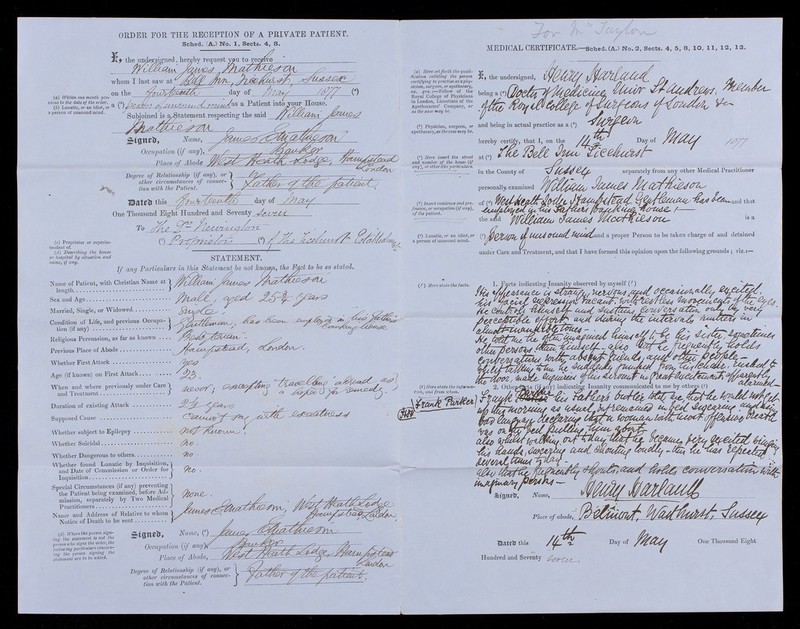 ORDER FOR THE RECEPTION OF A PRIVATE PATIENT.
Sched. (A.) No. 1, Sects. 4, 8.
I, the undersigned, hereby request you to receive
William James Mathieson
whom I last saw at Bell Inn, Ticehurst, Sussex
on the fourteenth day of May 1877 (a)
(a) Within one month previous to the date of the order.
(b) Lunatic, or an idiot, or a person of unsound mind.
a (b) person of unsound mind as a Patient into your House.
Subjoined is a Statement respecting the said William James
Mathieson
Signed, Name, James Mathieson
Occupation (if any), Banker
Place of Abode West Heath Lodge, Hampstead
London
Degree of Relationship (if any), or other circumstances of connection with the Patient. } Father of the patient.
Dated this fourteenth day of May
One Thousand Eight Hundred and Seventy Seven
To Dr Newington
(c) Proprietor or superintendent of.
(d) Describing the house or hospital by situation and name, if any.
(c) Proprietor (d) of the Ticehurst Establishment
STATEMENT.
If any Particulars in this Statement be not known, the Fact to be so stated.
Name of Patient, with Christian Name at length } William James Mathieson
Sex and Age Male, aged 25½ years
Married, Single, or Widowed Single
Condition of Life, and previous Occupation (if any) } Gentleman, has been employed in his father's Banking House
Religious Persuasion, as far as known
Previous Place of Abode Hampstead, London.
Whether First Attack yes
Age (if known) on First Attack 23.
When and where previously under Care and Treatment } never, excepting travelling abroad as a supposed remedy.
Duration of existing Attack 2½ years
Supposed Cause
Whether subject to Epilepsy not known.
Whether Suicidal no.
Whether Dangerous to others no
Whether found Lunatic by Inquisition, and Date of Commission or Order for Inquisition } no.
Special Circumstances (if any) preventing the Patient being examined, before Admission, separately by Two Medical Practitioners } None.
Name and Address of Relative to whom Notice of Death to be sent } James Mathieson, West Heath Lodge Hampstead London
(e) Where the person signing the statement is not the person who signs the order, the following particulars concerning the person signing the statement are to be added.
Signed, Name, (e) James Mathieson
Occupation (if any) Banker
Place of Abode, West Heath Lodge Hampstead London
Degree of Relationship (if any), or other circumstances of connection with the Patient. } Father of the patient.
For Mr Taylor
MEDICAL CERTIFICATE.—Sched. (A.) No. 2, Sects. 4, 5, 8, 10, 11, 12, 13.
(a) Here set forth the qualification entitling the person certifying to practise as a physician, surgeon, or apothecary, ex. gra.:—Fellow of the Royal College of Physicians in London, Licentiate of the Apothecaries' Company, or as the case may be.
I, the undersigned, Henry Harland
being a (a) Doctor of Medicine, Univ St Andrews, Member
of the Royal College of Surgeons of London &c
(b) Physician, surgeon, or apothecary, as the case may be.
and being in actual practice as a (b) Surgeon
hereby certify, that I, on the 14th Day of May 1877
(c) Here insert the street and number of the house (if any), or other like particulars.
at (c) The Bell Inn Ticehurst
in the County of Sussex separately from any other Medical Practitioner
personally examined William James Mathieson
(d) Insert residence and profession, or occupation (if any), of the patient.
of (d) West Heath Lodge Hampstead, Gentleman has been
employed in his Fathers banking house and that
the said William James Mathieson is a
(e) Lunatic, or an idiot, or a person of unsound mind.
(e) Person of unsound mind and a proper Person to be taken charge of and detained
under Care and Treatment, and that I have formed this opinion upon the following grounds; viz.:—
(f) Here state the facts.
1. Facts indicating Insanity observed by myself (f)
His appearance is strange, nervous, and occasionally excited,
his facial expression vacant, with restless movements of the eyes.
He controls himself and sustains conversation only by very
perceptible effort, and during the intervals mutters in
almost inaudible tones.
He told me he often imagined himself to be his sister, sometimes
other persons, then himself also that he frequently holds
conversations with absent friends, and other people—
whilst talking to him he suddenly jumped from his chair, rushed to
the door, made enquiries apparently
alarmed—
(g) Here state the information, and from whom.
2. Other Facts (if any) indicating Insanity communicated to me by others (g)
Frank Parker Frank Parker his Fathers butler tells me that he would not get
up this morning as usual, but remained in bed swearing and using
bad language declaring that a woman with most offensive breath
was on the bed pulling him about
also whilst walking out to day that he became very excited wringing
his hands, swearing and shouting loudly—this he has repeated
several times to day—
also that he frequently shouts, and holds conversations with
imaginary persons—
Signed, Name, Henry Harland
Place of abode, Belmont, Wadhurst, Sussex
Dated this 14th Day of May One Thousand Eight
Hundred and Seventy seven.